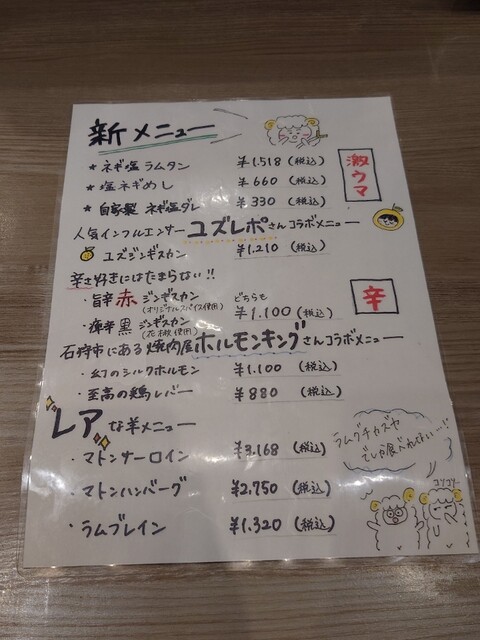 新メニュー
★ ネギ塩ラムタン ¥1.518 (税込)
★ 塩ネギめし ¥660 (税込)
★ 自家製 ネギ塩ダレ ¥330 (税込)
激ウマ
人気インフルエンサー ユズレポさんコラボメニュー
ユズジンギスカン ¥1.210 (税込)
辛さ好きにはたまらない!!
・旨辛 赤 ジンギスカン
(オリジナルスパイス使用)
・痺辛 黒 ジンギスカン
(花椒使用)
どちらも
¥1.100 (税込)
辛
石狩市にある焼肉屋ホルモンキングさんコラボメニュー
・幻のシルクホルモン ¥1.100 (税込)
・至高の鶏レバー ¥880 (税込)
レアな羊メニュー
・マトンサーロイン ¥3.168 (税込)
・マトンハンバーグ ¥2.750 (税込)
・ラムブレイン ¥1.320 (税込)
ラムグチカズヤ
でしか食べれない〜!!
コソコソ